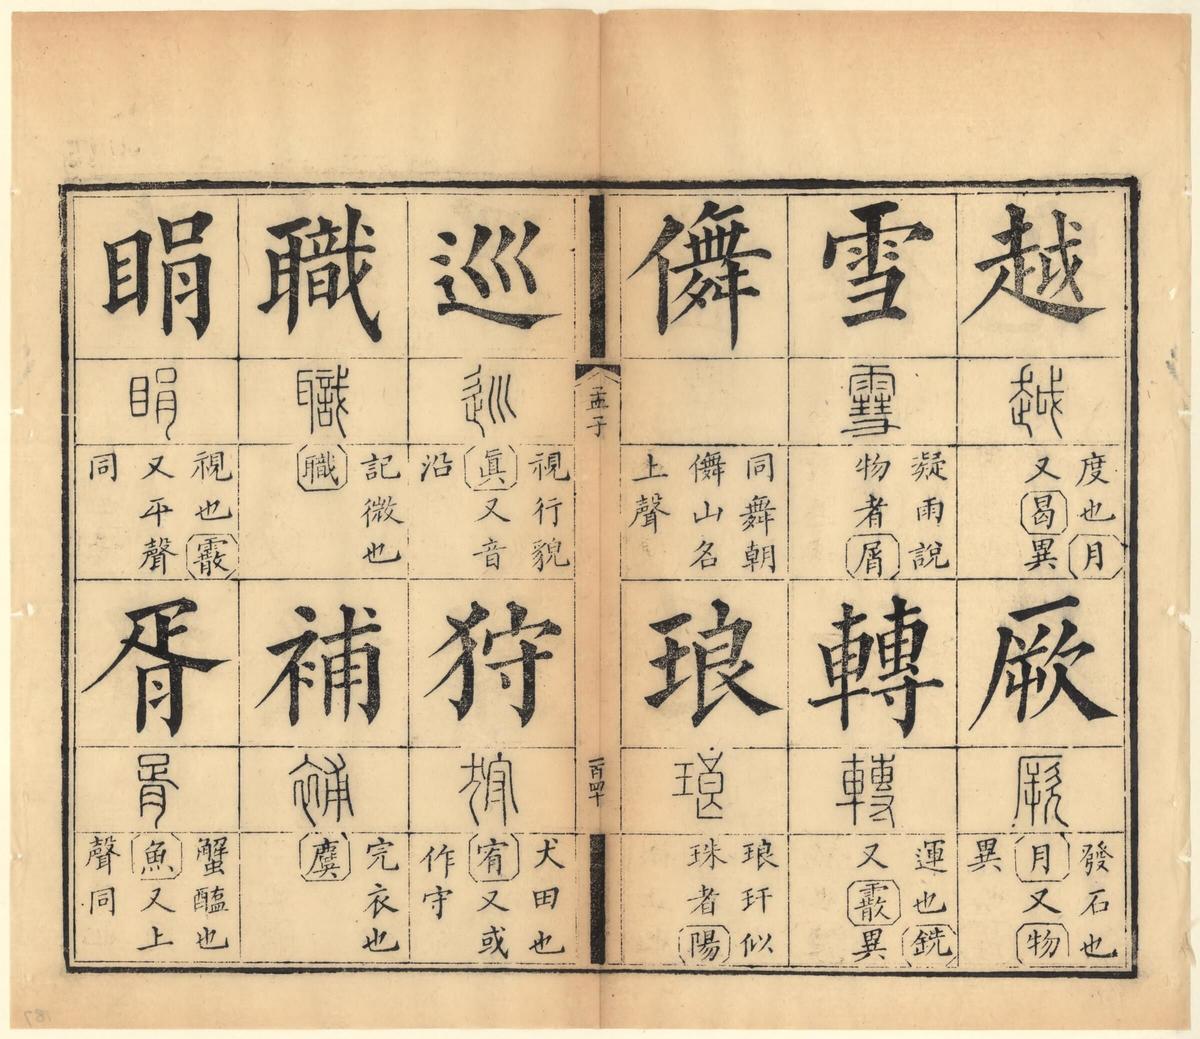 越
越
度也月
又曷異
厥
厥
發石也
月又物
異
雪
雪
凝雨說
物者屑
轉
轉
運也銑
又霰異
儛
同舞朝
儛山名
上聲
琅
琅
琅玕似
珠者陽
孟子
一百四十
巡
巡
視行貌
眞又音
沿
狩
狩
犬田也
宥又或
作守
職
職
記微也
職
補
補
完衣也
麌
睊
睊
視也霰
又平聲
同
胥
胥
蟹醢也
魚又上
聲同